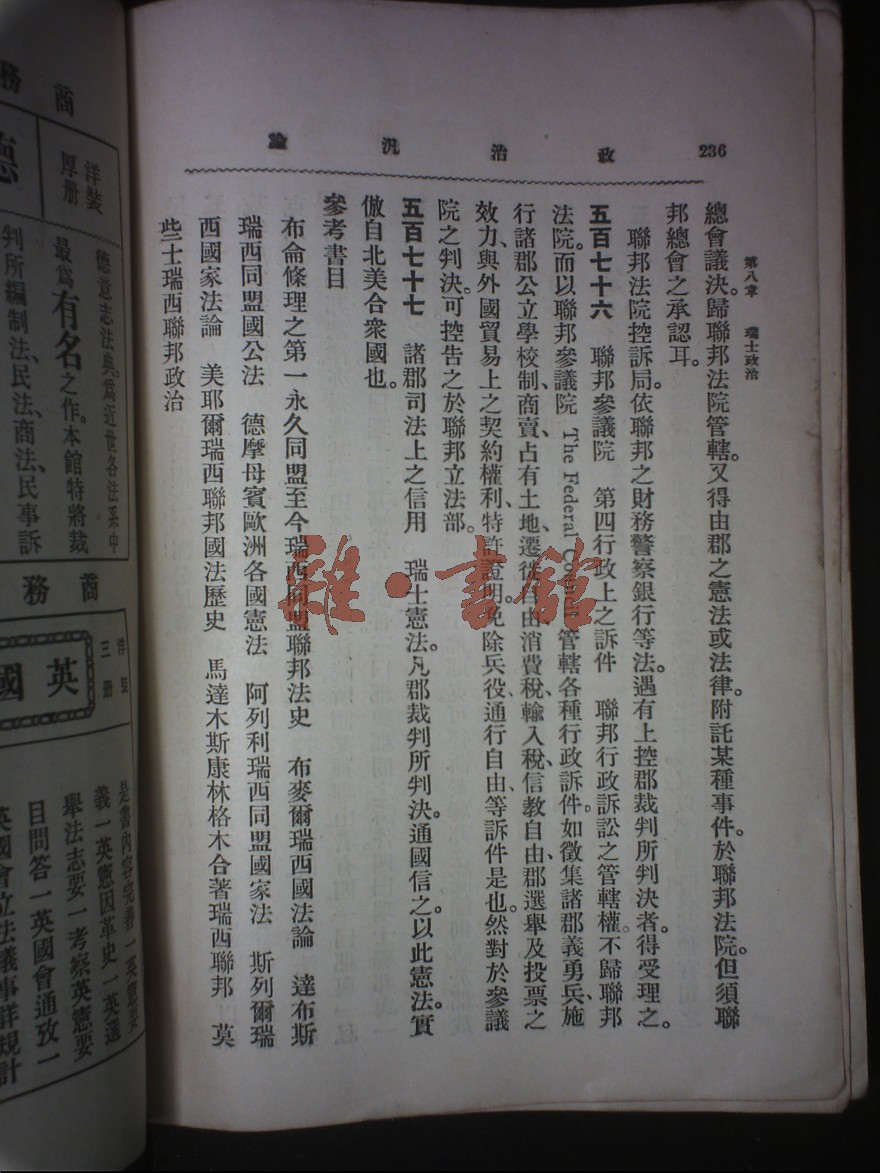 236
政治汎論
第八章　瑞士政治
總會議決。歸聯邦法院管轄。又得由郡之憲法或法律。附託某種事件。於聯邦法院。但須聯
邦總會之承認耳。
聯邦法院控訴局。依聯邦之財務警察銀行等法。遇有上控郡裁判所判決者。得受理之。
五百七十六　聯邦參議院　第四行政上之訴件　聯邦行政訴訟之管轄權。不歸聯邦
法院。而以聯邦參議院 The Federal Council 管轄各種行政訴件。如徵集諸郡義勇兵、施
行諸郡公立學校制、商賣占有土地、遷徙自由、消費稅、輸入稅、信教自由、郡選舉及投票之
效力、與外國貿易上之契約權利、特許證明、免除兵役、通行自由、等訴件是也。然對於參議
院之判決。可控告之於聯邦立法部。
五百七十七　諸郡司法上之信用　瑞士憲法。凡郡裁判所判決。通國信之。以此憲法。實
倣自北美合衆國也。
參考書目
布侖條理之第一永久同盟至今瑞西同盟聯邦法史　布麥爾瑞西國法論　達布斯
瑞西同盟國公法　德摩母賓歐洲各國憲法　阿列利瑞西同盟國家法　斯列爾瑞
西國家法論　美耶爾瑞西聯邦國法歷史　馬達木斯康林格木合著瑞西聯邦　莫
些士瑞西聯邦政治
雜·書館
商務
洋裝
厚册
德
德意志法典。爲近世各法系中
最爲有名之作。本館特將裁
判所編制法、民法、商法、民事訴
商務
洋裝
三册
英國
是書內容完善一英憲要
義一英憲因革史一英選
舉法志要一考察英憲要
目問答一英國會通攷一
英國會立法議事詳規計